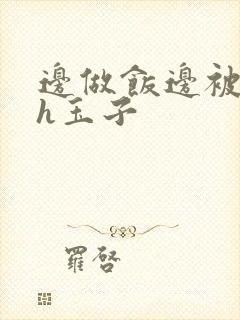 邊做飯邊被
h玉子
羅啓